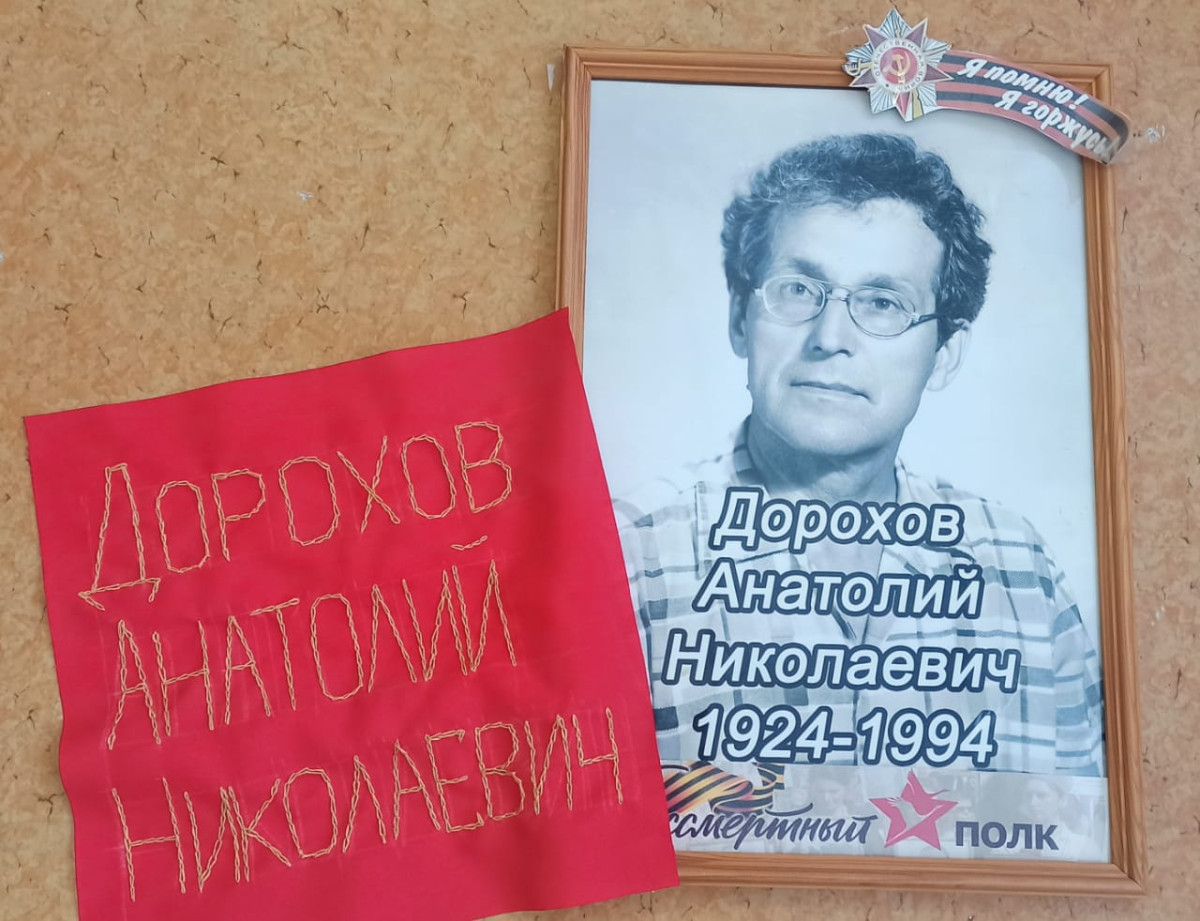 ДОРОХОВ
АНАТОЛИЙ
НИКОЛАЕВИЧ
Я помню!
Я горжусь!
Дорохов
Анатолий
Николаевич
1924-1994
ссмертный ПОЛК